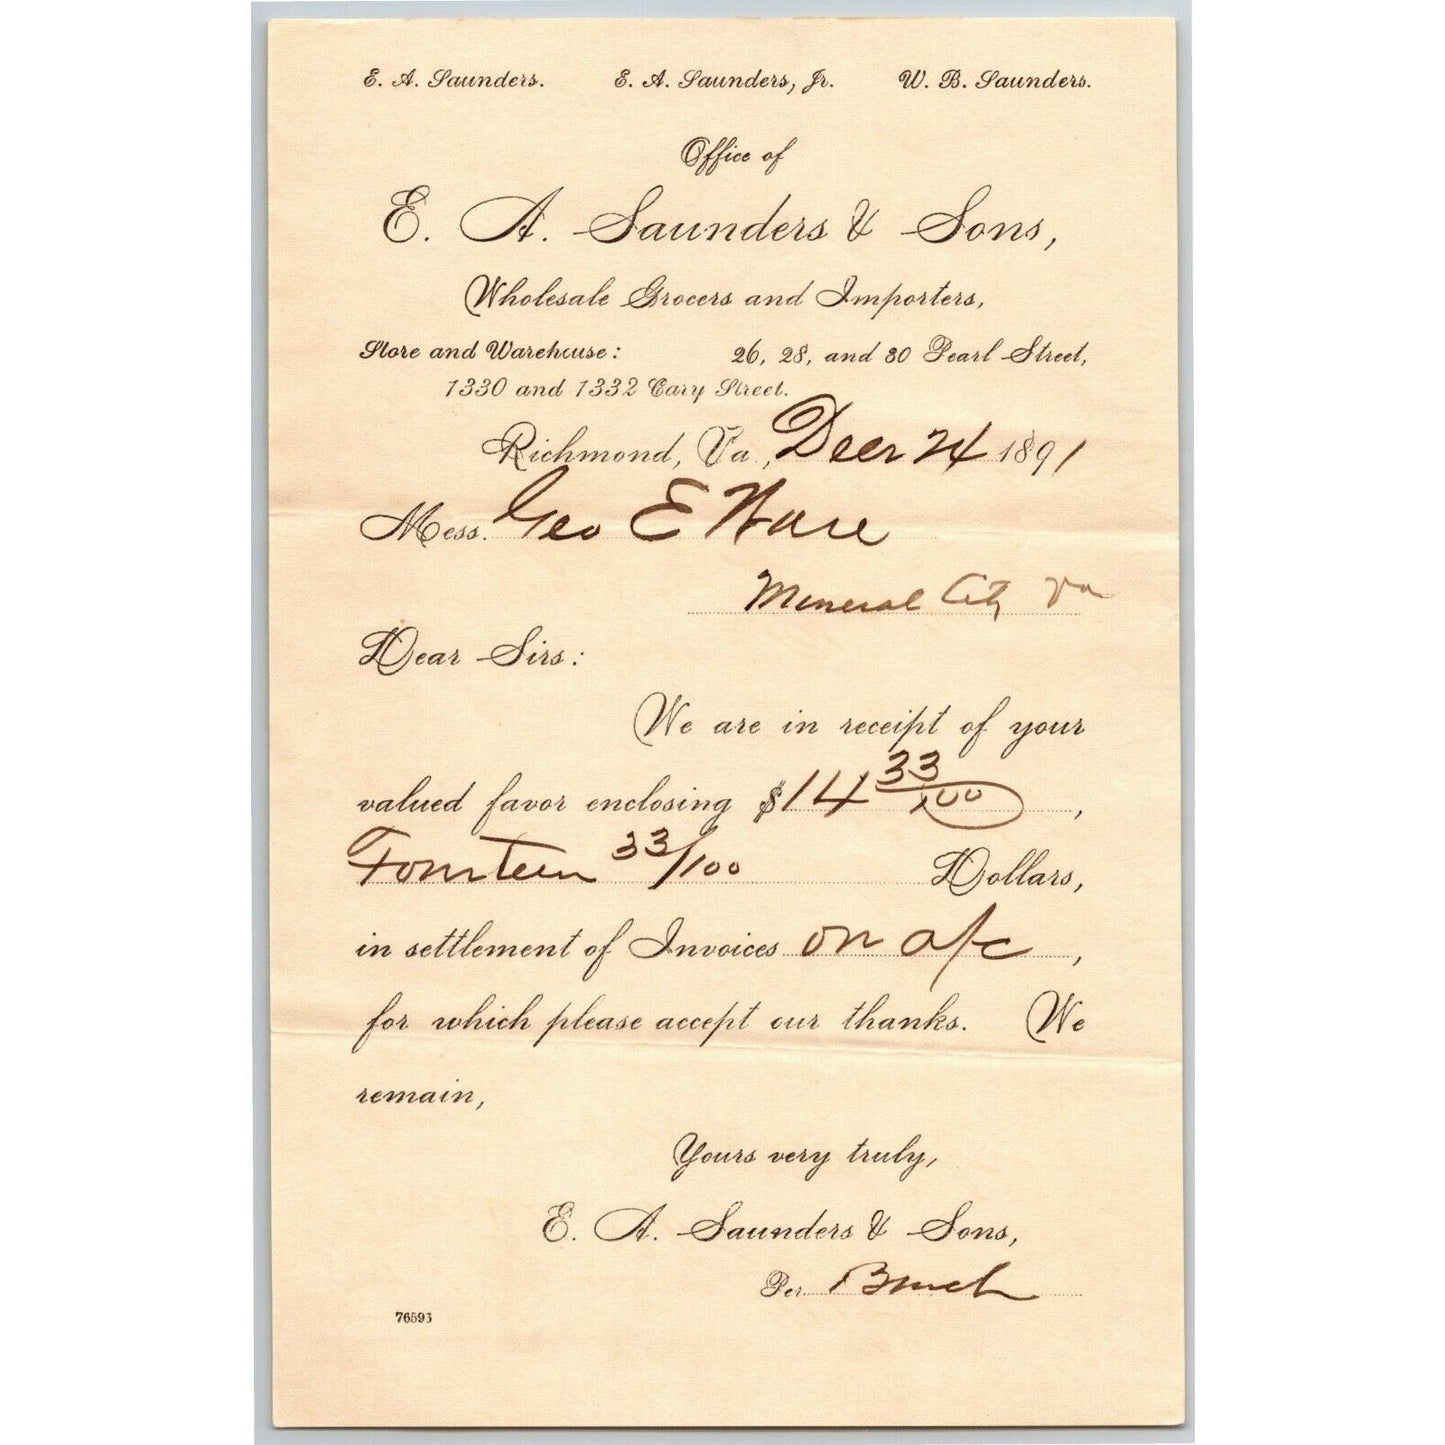 E. A. Saunders. E. A. Saunders, Jr. W. B. Saunders.
Office of
E. A. Saunders & Sons,
Wholesale Grocers and Importers,
Store and Warehouse: 26, 28, and 30 Pearl Street,
1330 and 1332 Cary Street.
Richmond, Va., Decr 24 1891
Mess. Geo E Ware
Mineral City Va
Dear Sirs:
We are in receipt of your
valued favor enclosing $14 33/100,
Fourteen 33/100 Dollars,
in settlement of Invoices on a/c,
for which please accept our thanks. We
remain,
Yours very truly,
E. A. Saunders & Sons,
Per
76593